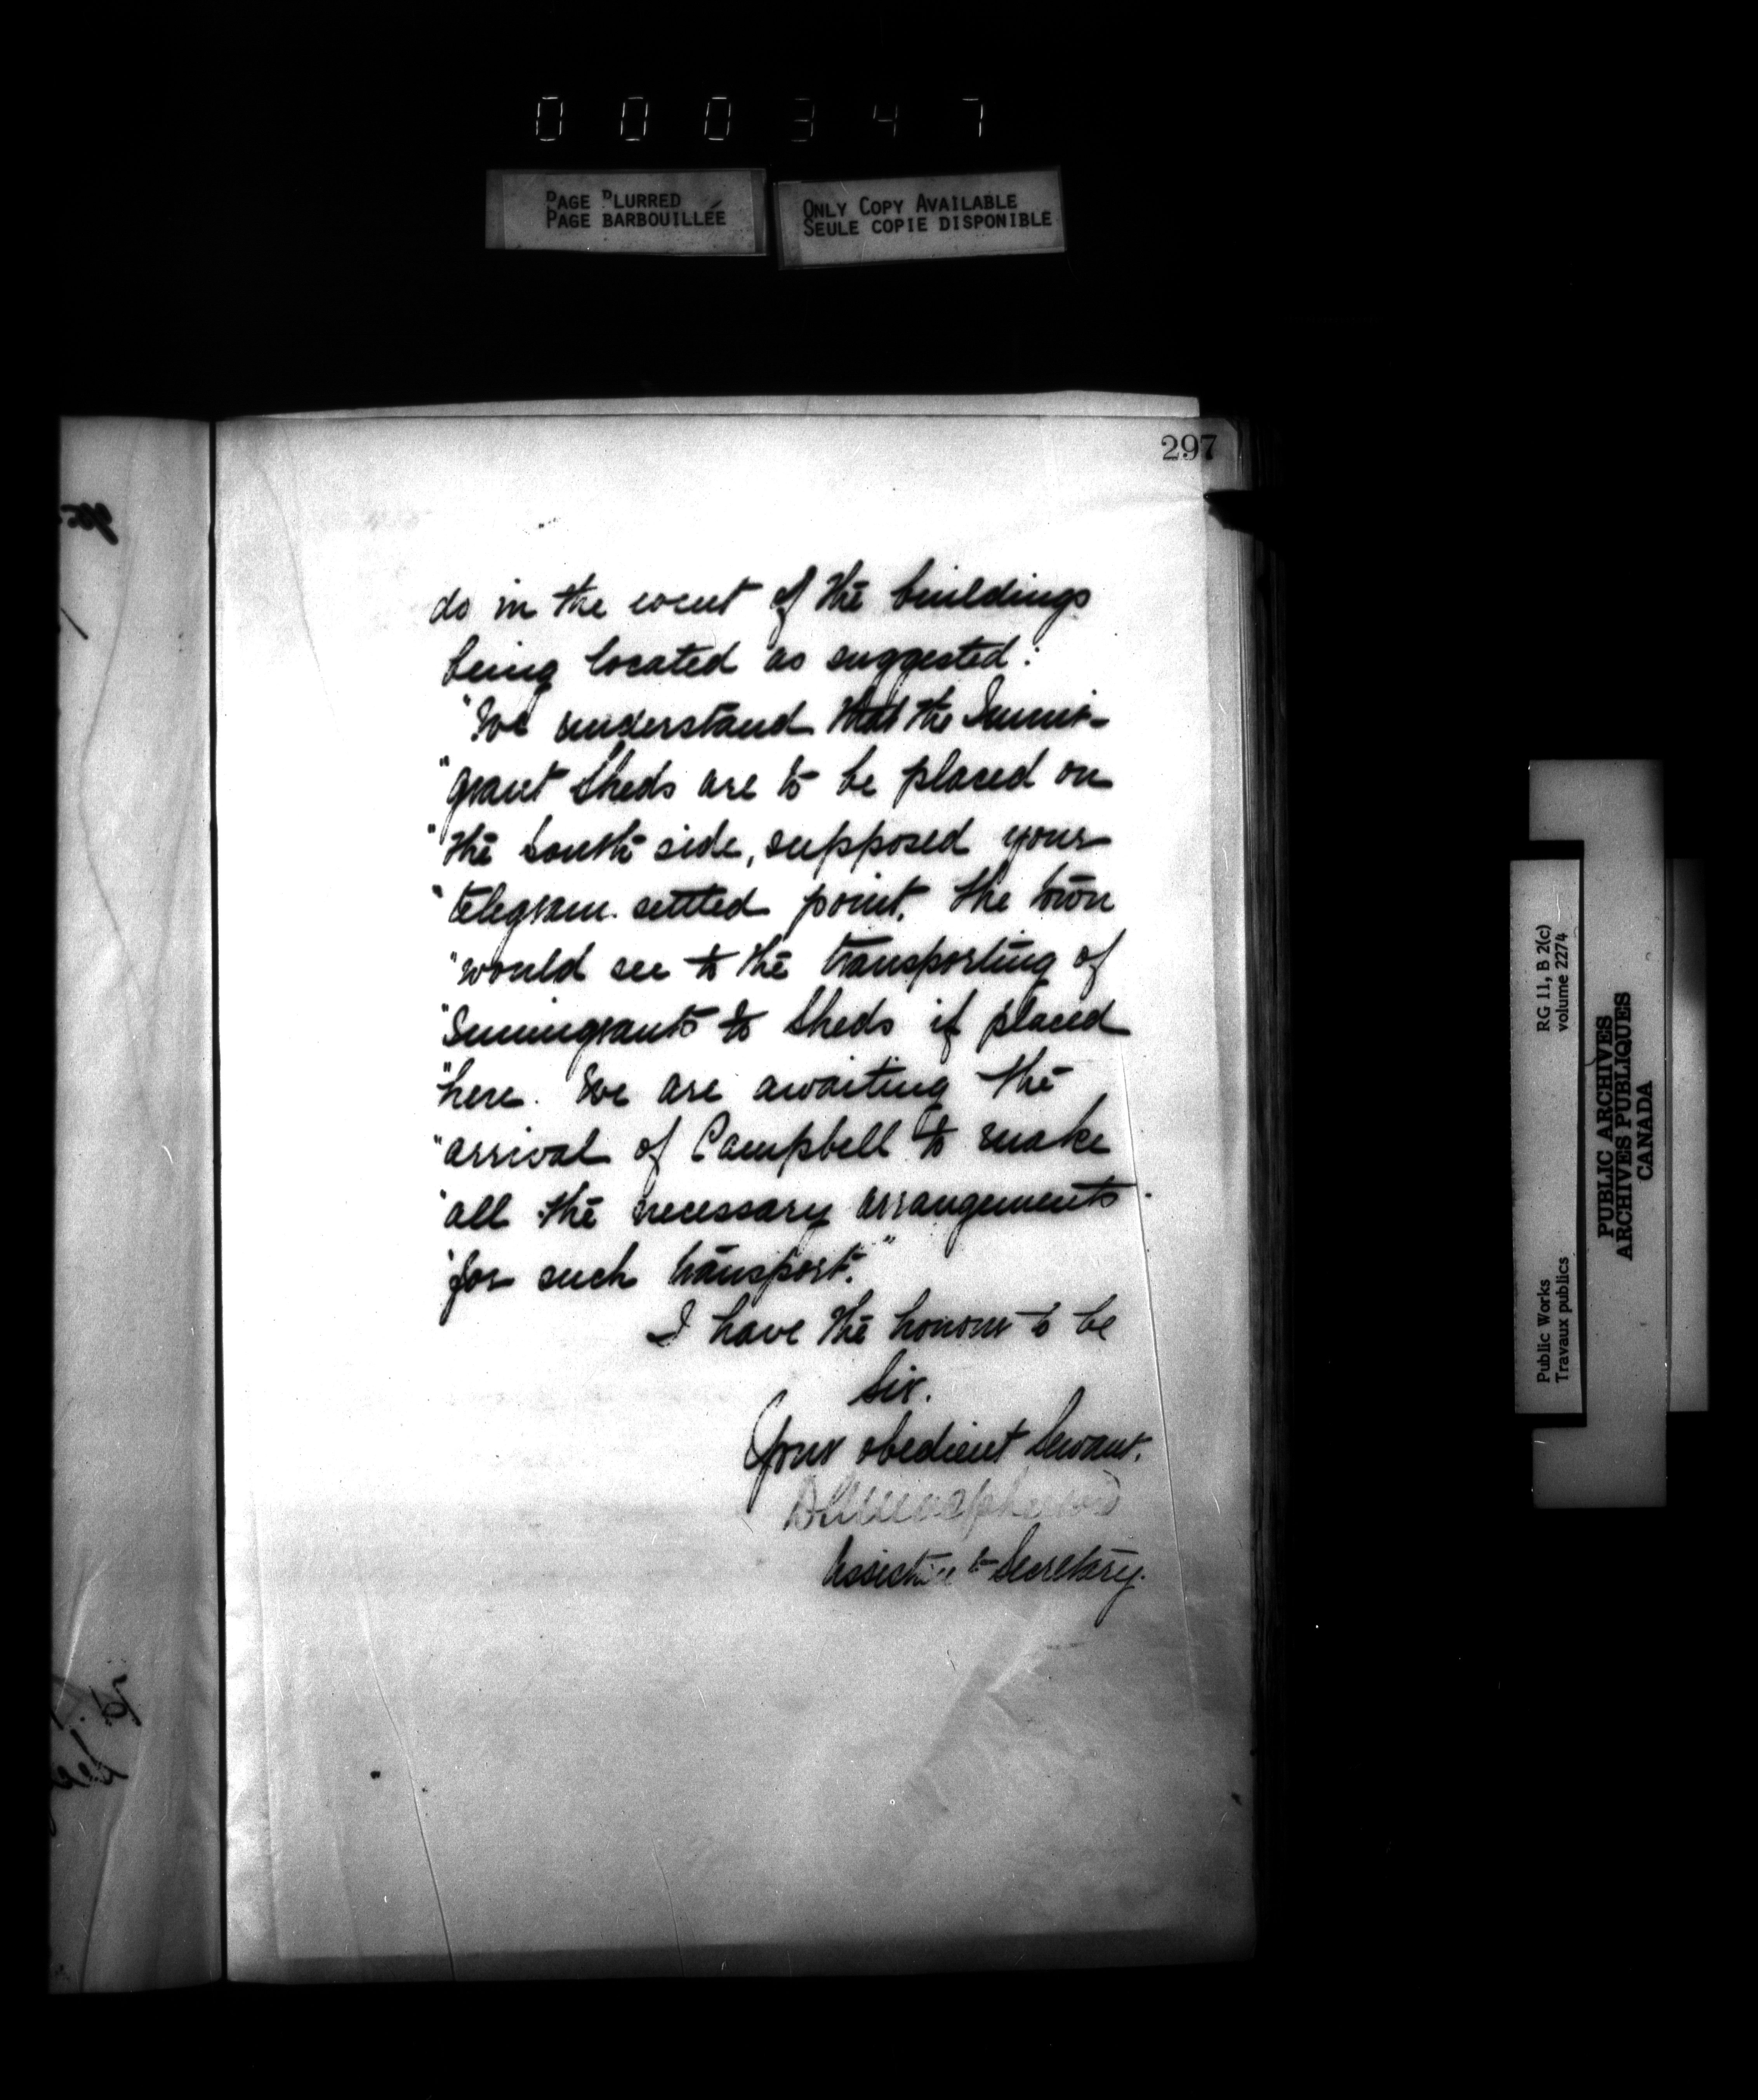 0 0 0 3 4 7
PAGE BLURRED
PAGE BARBOUILLÉE
ONLY COPY AVAILABLE
SEULE COPIE DISPONIBLE
297
do in the event of the buildings
being located as suggested:
"We understand that the Immi-
"grant Sheds are to be placed on
"the South side, supposed your
"telegram settled point. The town
"would see to the transporting of
"Immigrants to Sheds if placed
"here. We are awaiting the
"arrival of Campbell to make
"all the necessary arrangements
"for such transport."
I have the honour to be
Sir.
Your obedient Servant.
Assistant Secretary.
Public Works
Travaux publics
RG 11, B 2(c)
volume 2274
PUBLIC ARCHIVES
ARCHIVES PUBLIQUES
CANADA